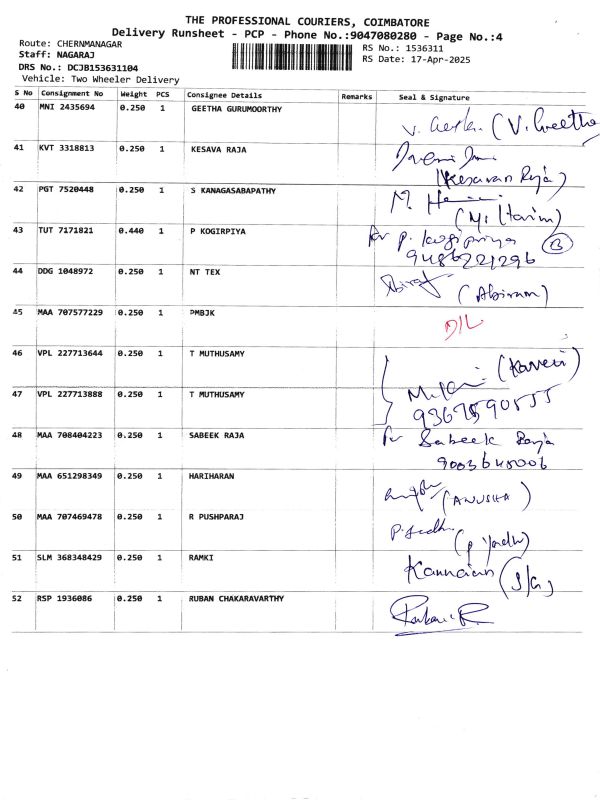 THE PROFESSIONAL COURIERS, COIMBATORE
Delivery Runsheet - PCP - Phone No.:9047080280 - Page No.:4
Route: CHERNMANAGAR
RS No.: 1536311
Staff: NAGARAJ
RS Date: 17-Apr-2025
DRS No.: DCJB153631104
Vehicle: Two Wheeler Delivery
S No Consignment No Weight PCS Consignee Details Remarks Seal & Signature
40 MNI 2435694 0.250 1 GEETHA GURUMOORTHY
V. Geetha (V. Geetha
41 KVT 3318813 0.250 1 KESAVA RAJA
(Kesavan Raja)
42 PGT 7520448 0.250 1 S KANAGASABAPATHY
43 TUT 7171821 0.440 1 P KOGIRPIYA
P. kogipriya
9486221296
44 DDG 1048972 0.250 1 NT TEX
(Abiram)
45 MAA 707577229 0.250 1 PMBJK
D/L
46 VPL 227713644 0.250 1 T MUTHUSAMY
(Kaveri)
47 VPL 227713888 0.250 1 T MUTHUSAMY
48 MAA 708404223 0.250 1 SABEEK RAJA
Sabeek Raja
9003645006
49 MAA 651298349 0.250 1 HARIHARAN
(ANUSHA)
50 MAA 707469478 0.250 1 R PUSHPARAJ
51 SLM 368348429 0.250 1 RAMKI
Kannaian
52 RSP 1936086 0.250 1 RUBAN CHAKARAVARTHY